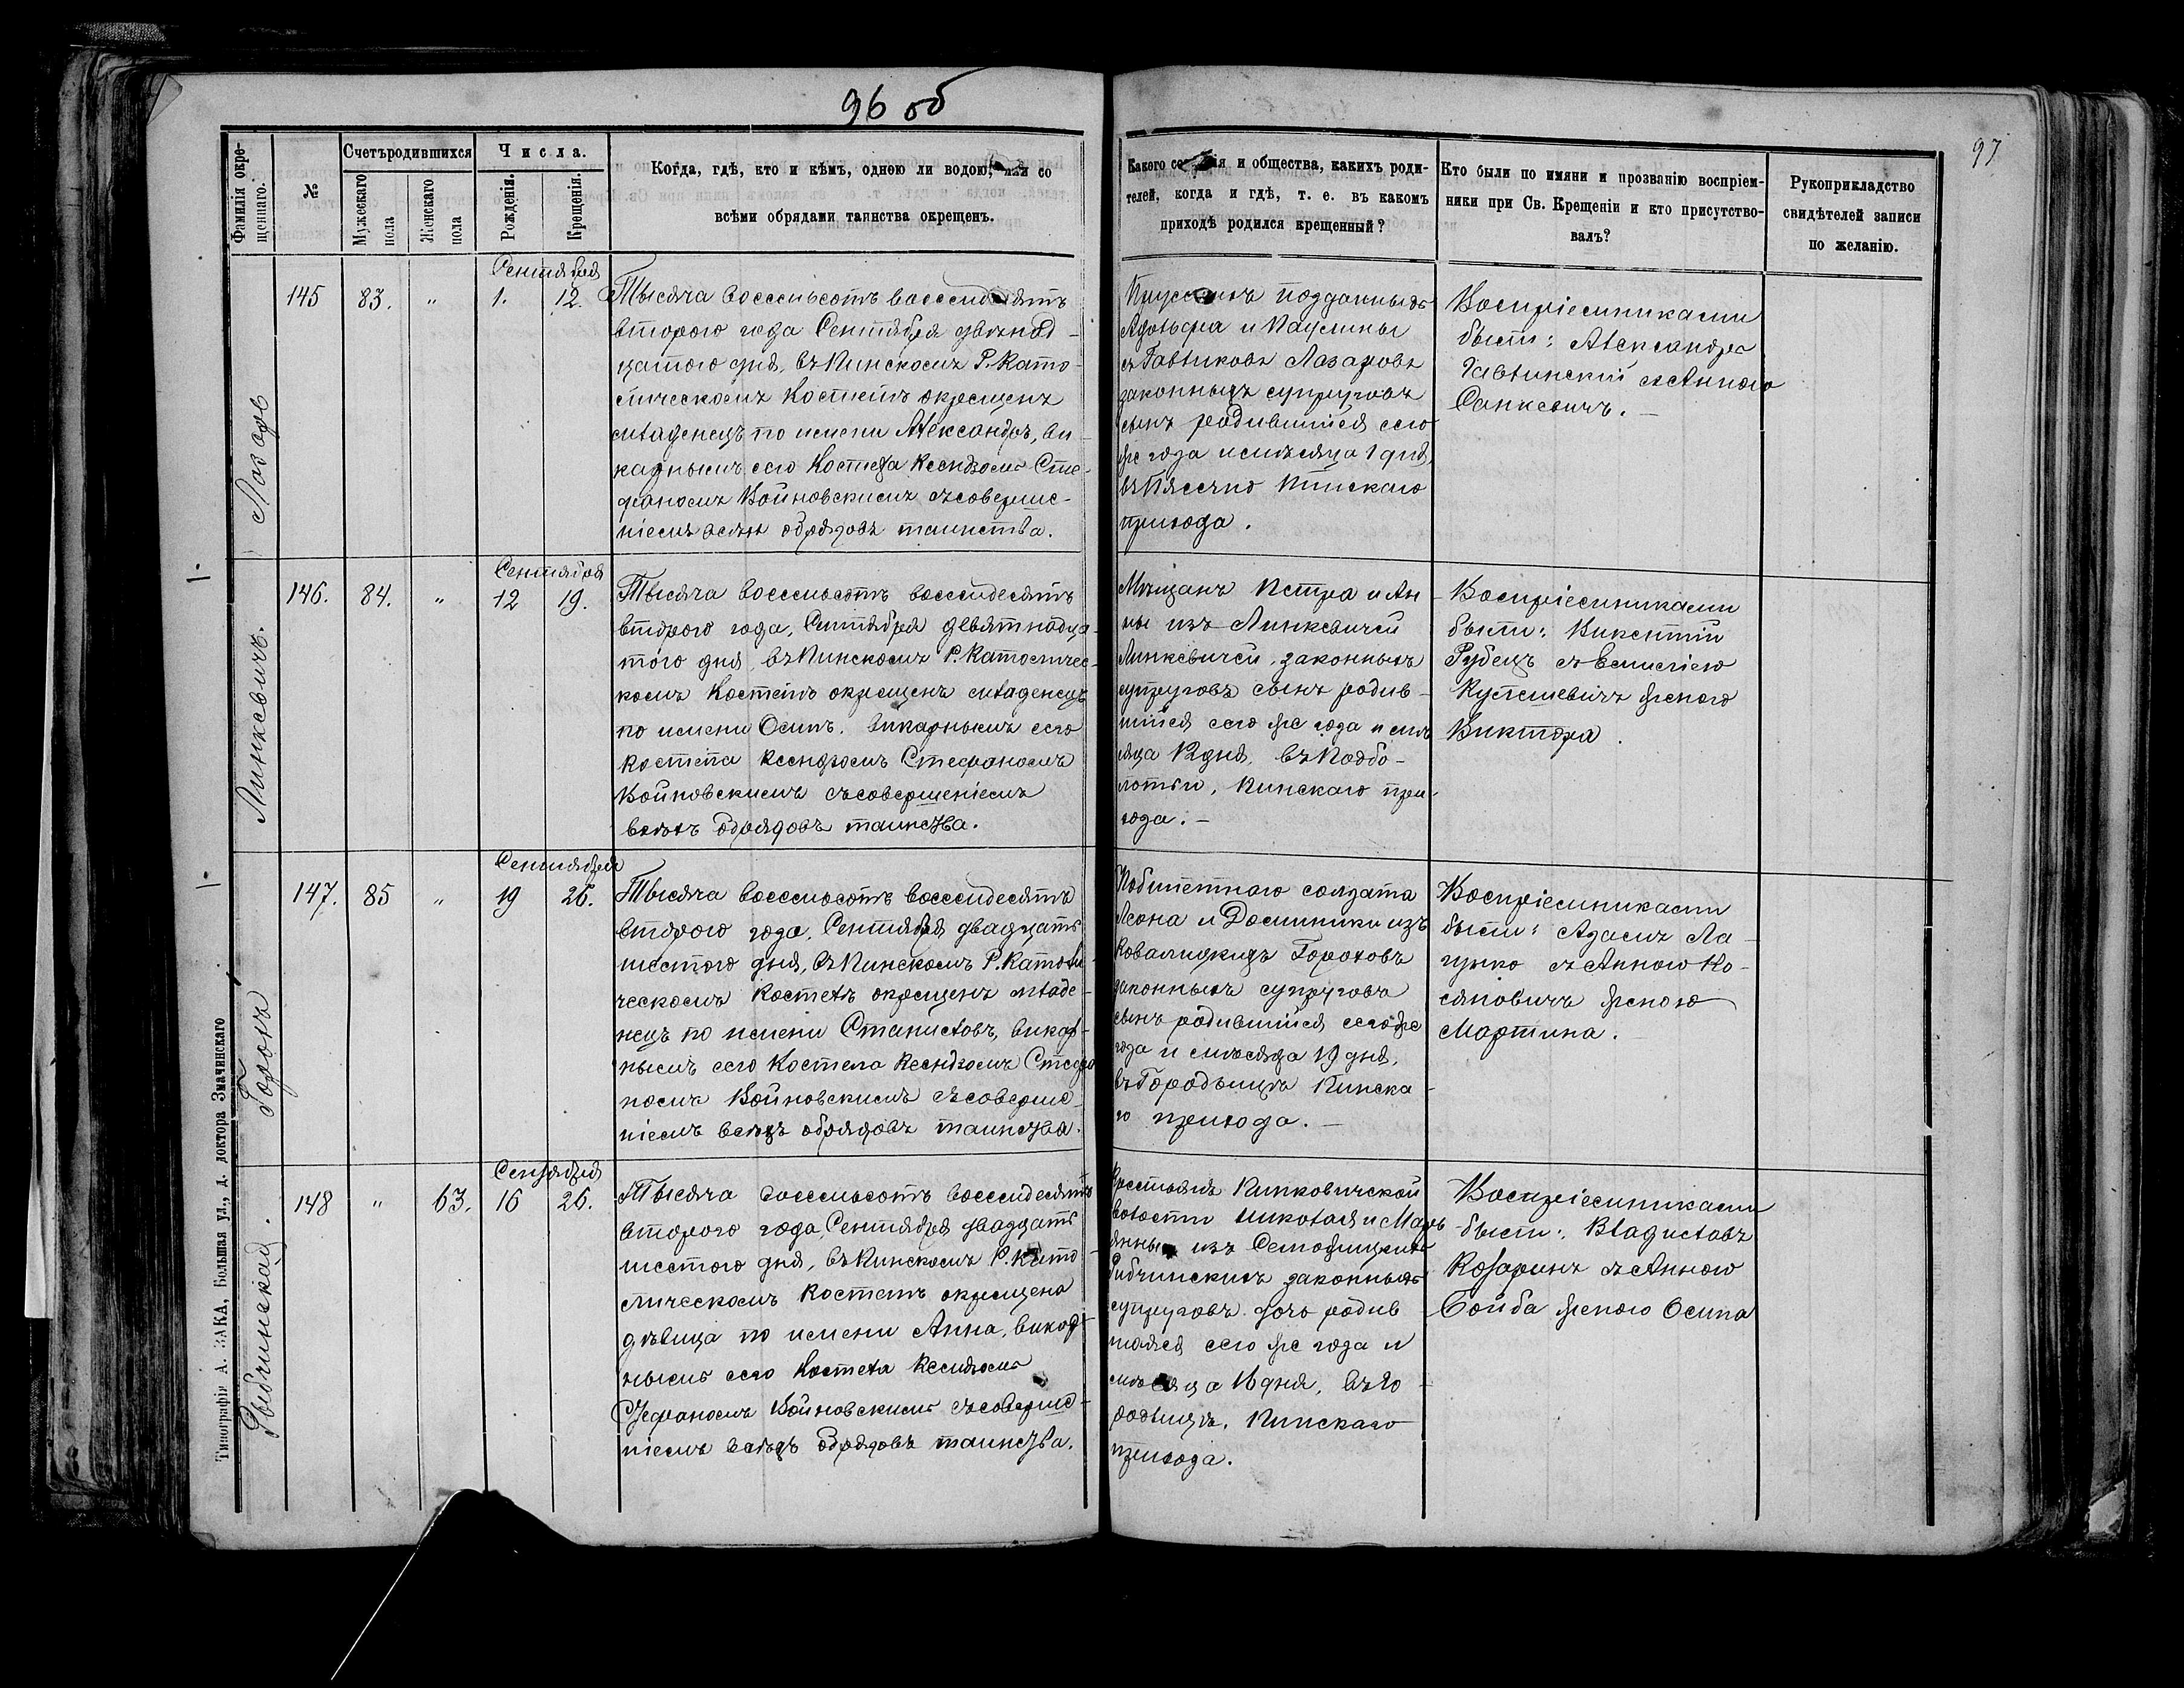 96 об
97
Фамилія окре-
щеннаго.
№
Счетъ родившихся
Мужескаго
пола
Женскаго
пола
Числа.
Рожденія.
Крещенія.
Когда, гдѣ, кто и кѣмъ, одною ли водою, или со
всѣми обрядами таинства окрещенъ.
Какого и общества, какихъ роди-
телей, когда и гдѣ, т. е. въ какомъ
приходѣ родился крещенный?
Кто были по имяни и прозванію воспріем-
ники при Св. Крещеніи и кто присутство-
валъ?
Рукоприкладство
свидѣтелей записи
по желанію.
Лазаръ
145
83.
"
Сентября
1.
12.
Тысяча восемьсотъ восемьдесятъ
второго года Сентября двѣнад-
цатого дня, въ Пинскомъ Р. Като-
лическомъ Костелѣ окрещенъ
младенецъ по имени Александръ, ви-
карнымъ сего Костела Ксендзомъ Сте-
фаномъ Войновскимъ съ соверше-
ніемъ всѣхъ обрядовъ таинства.
подданныхъ
Адольфа и Паулины
Лазаровъ
законныхъ супруговъ
сынъ родившійся сего
же года и мѣсяца 1 дня,
Пинскаго
прихода.
Воспріемниками
были: Александръ
съ Анною
Санкевичъ. –
Линкевичъ.
146.
84.
"
Сентября
12
19.
Тысяча восемьсотъ восемьдесятъ
второго года, Сентября девятнадца-
того дня, въ Пинскомъ Р. Католичес-
комъ Костелѣ окрещенъ младенецъ
по имени Осипъ, викарнымъ сего
костела Ксендзомъ Стефаномъ
Войновскимъ съ совершеніемъ
всѣхъ обрядовъ таинства.
Мѣщанъ Петра и Ан-
ны изъ Линкевичей
Линкевичей, законныхъ
супруговъ сынъ родив-
шійся сего же года и мѣс
яца 12 дня, въ Подбо-
лотьи, Пинскаго при-
хода. –
Воспріемниками
были: Викентій
Рубецъ съ
женою
Виктора.
Горохъ
147.
85
"
Сентября
19
26.
Тысяча восемьсотъ восемьдесятъ
второго года, Сентября двадцать
шестого дня, въ Пинскомъ Р. Католи-
ческомъ Костелѣ окрещенъ младе-
нецъ по имени Станиславъ, викар-
нымъ сего Костела Ксендзомъ Стефа
номъ Войновскимъ съ соверше-
ніемъ всѣхъ обрядовъ таинства.
солдата
Леона и Доминики изъ
Ковалицкихъ Гороховъ
законныхъ супруговъ
сынъ родившійся сего же
года и мѣсяца 19 дня,
въ Городыщѣ Пинска-
го прихода. –
Воспріемниками
были: Адамъ Ла-
съ Анною Ко-
женою
Мартина. –
Рыбчинская.
148
"
63.
Сентября
16
26.
Тысяча восемьсотъ восемьдесятъ
второго года, Сентября двадцать
шестого дня, въ Пинскомъ Р. Като-
лическомъ Костелѣ окрещена
дѣвица по имени Анна, викар-
нымъ сего Костела Ксендзомъ
Стефаномъ Войновскимъ съ соверше-
ніемъ всѣхъ обрядовъ таинства.
Крестьянъ Пинковичской
волости Николая и Марь
янны изъ
Рибчинскихъ законныхъ
супруговъ дочь родив
шаяся сего же года и
мѣсяца 16 дня, въ Го-
родыщѣ, Пинскаго
прихода.
Воспріемниками
были: Владиславъ
съ Анною
женою Осипа
Типографія А. ЗАКА, Большая ул., д. доктора Змачинскаго